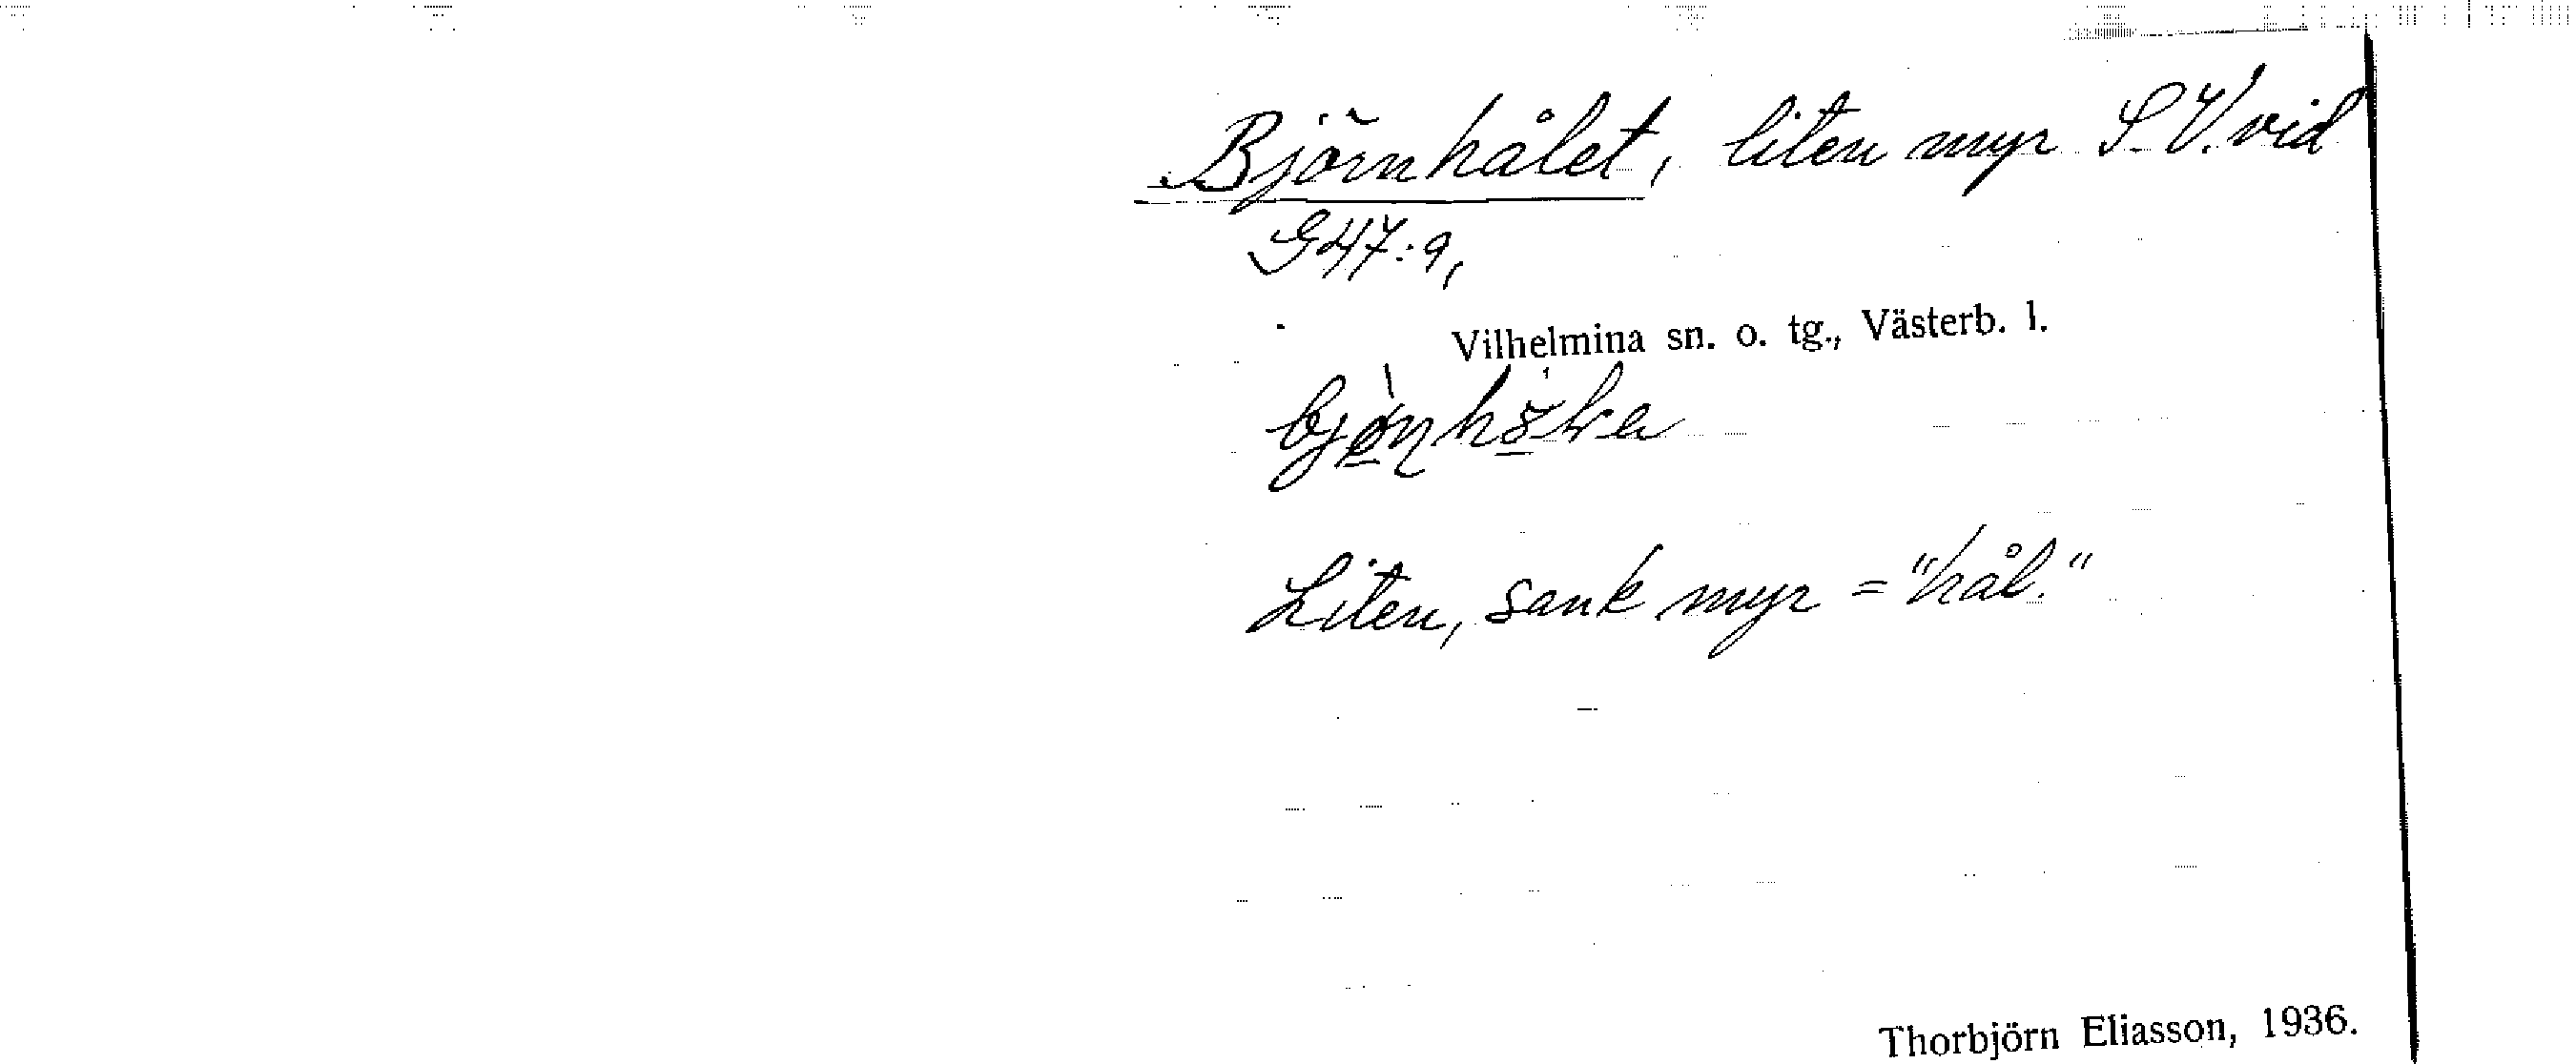 Björnhålet, liten myr S.V. vid
G47:9,
Vilhelmina sn. o. tg., Västerb. l.
Liten, sank myr = "hål."
Thorbjörn Eliasson, 1936.